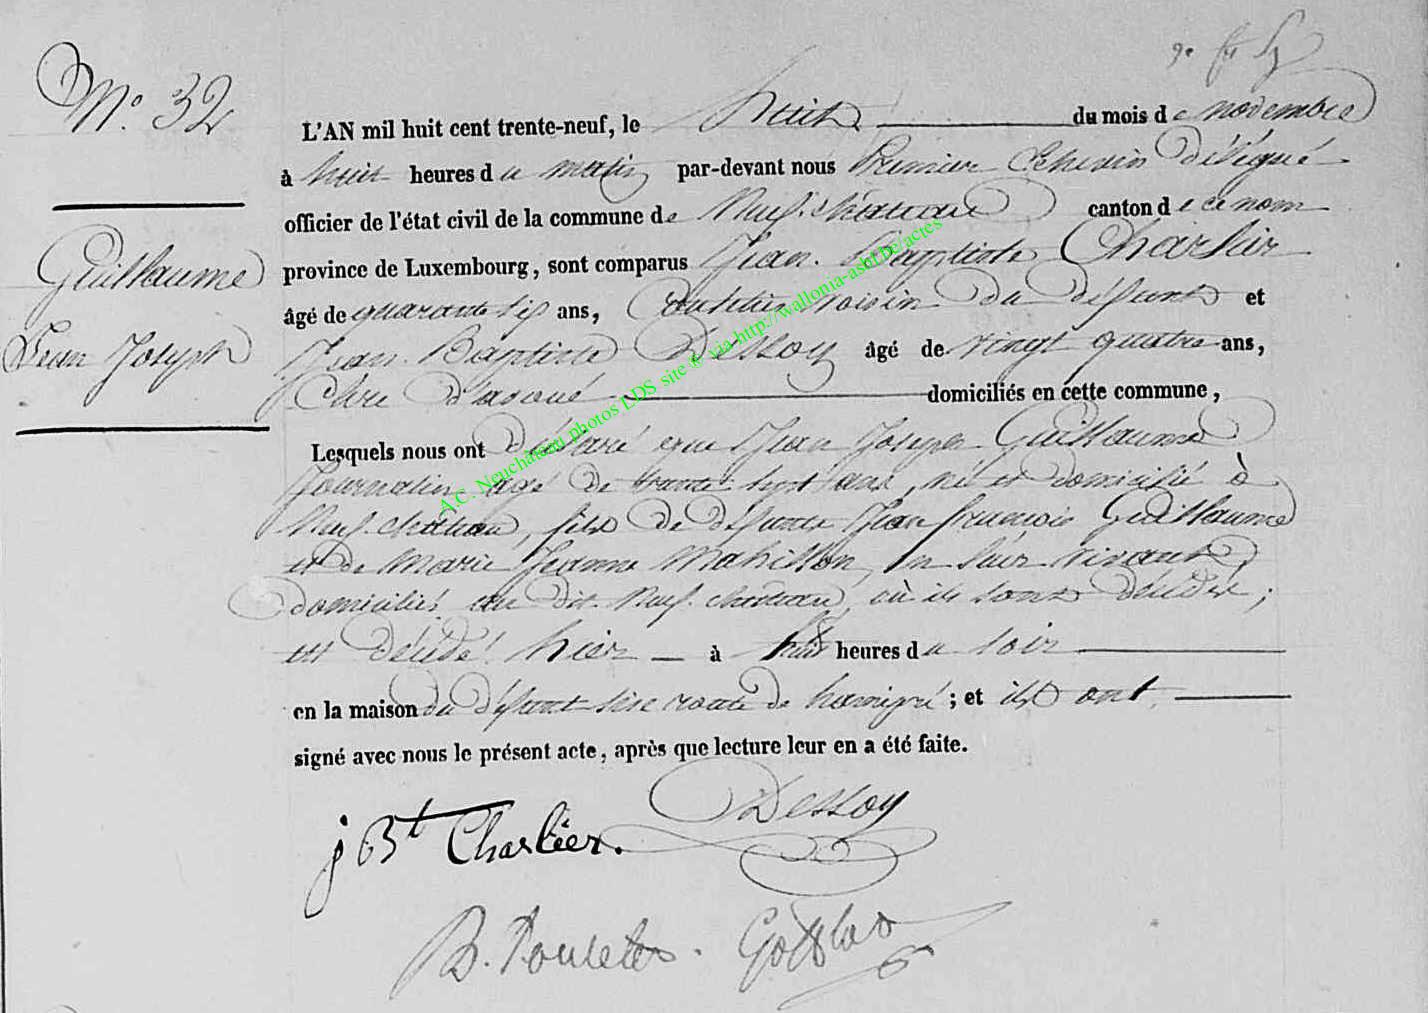 N° 32
Guillaume
Jean Joseph
L'AN mil huit cent trente-neuf, le huit du mois de novembre
à huit heures du matin par-devant nous Premier Echevin Délégué
officier de l'état civil de la commune de Neufchâteau canton de ce nom
province de Luxembourg, sont comparus Jean Baptiste Charlier
âgé de quarante six ans, voisin du défunt et
Jean Baptiste Dessoy âgé de vingt quatre ans,
Clerc d'avoué domiciliés en cette commune,
Lesquels nous ont déclaré que Jean Joseph Guillaume
Journalier âgé de trente sept ans, né et domicilié à
Neufchâteau, fils de défunts Jean françois Guillaume
et de Marie Jeanne Mahillon, en leur vivant
domiciliés au dit Neufchâteau, où ils sont décédés;
est décédé hier à huit heures du soir
en la maison du défunt sise route de hamipré; et ils ont
signé avec nous le présent acte, après que lecture leur en a été faite.
Dessoy
j Bt Charlier.
A.C. Neuchâteau photos LDS site @ via http://wallonia-asbl.be/actes